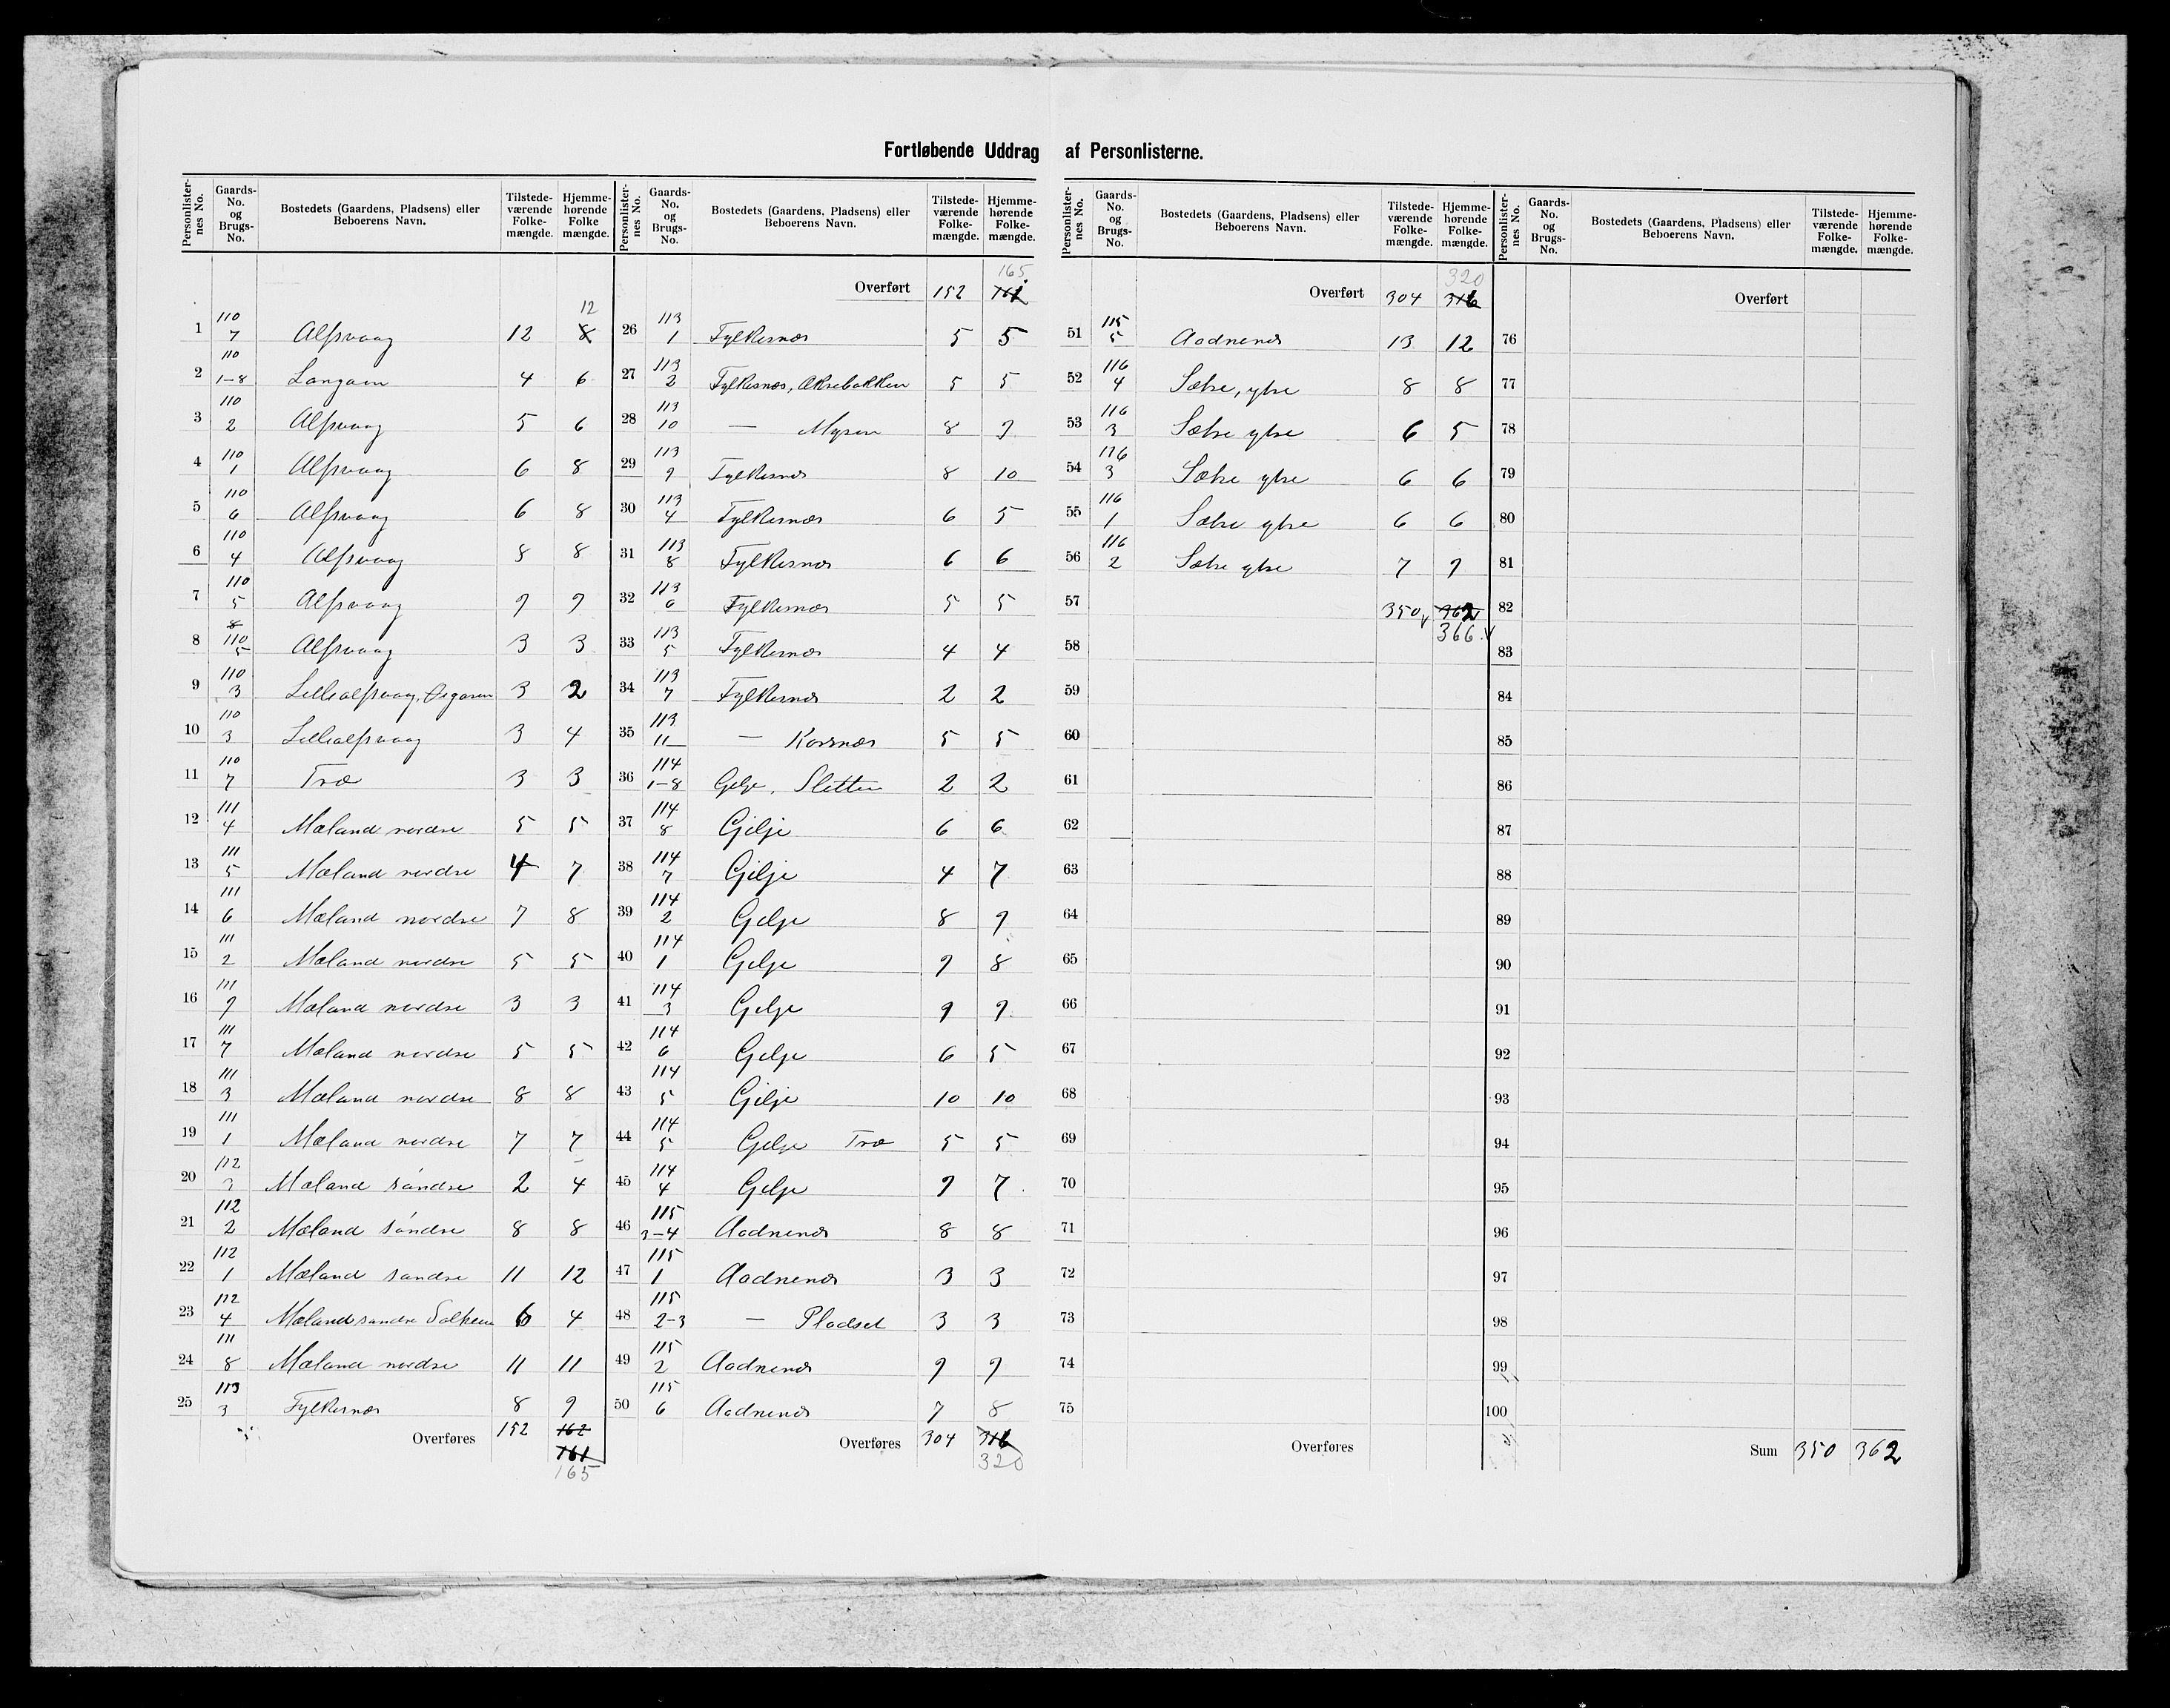 Fortløbende Uddrag af Personlisterne.
Personlister-nes No. Gaards-No. og Brugs-No. Bostedets (Gaardens, Pladsens) eller Beboerens Navn. Tilstede-værende Folke-mængde. Hjemme-hørende Folke mængde.
12
1 110 7 Alfsvaag 12 8
2 110 1-8 Langavn 4 6
3 110 2 Alfsvaag 5 6
4 110 1 Alfsvaag 6 8
5 110 6 Alfsvaag 6 8
6 110 4 Alfsvaag 8 8
7 110 5 Alfsvaag 9 9
8 110 5 Alfsvaag 3 3
9 110 3 Lillealfsvaag, 3 2
10 110 3 Lillealfsvaag 3 4
11 110 7 Træ 3 3
12 111 4 Mæland nordre 5 5
13 111 5 Mæland nordre 4 7
14 111 6 Mæland nordre 7 8
15 111 2 Mæland nordre 5 5
16 111 9 Mæland nordre 3 3
17 111 7 Mæland nordre 5 5
18 111 3 Mæland nordre 8 8
19 111 1 Mæland nordre 7 7
20 112 3 Mæland søndre 2 4
21 112 2 Mæland søndre 8 8
22 112 1 Mæland søndre 11 12
23 112 4 Mæland søndre 6 4
24 111 8 Mæland nordre 11 11
25 113 3 Fylkesnæs 8 9
Overføres 152 162
161
165
Personlister-nes No. Gaards-No. og Brugs-No. Bostedets (Gaardens, Pladsens) eller Beboerens Navn. Tilstede-værende Folke-mængde. Hjemme-hørende Folke-mængde.
165
Overført 152 161
26 113 1 Fylkesnæs 5 5
27 113 2 Fylkesnæs, Aksebakken 5 5
28 113 10 — Myren 8 9
29 113 9 Fylkesnæs 8 10
30 113 4 Fylkesnæs 6 5
31 113 8 Fylkesnæs 6 6
32 113 6 Fylkesnæs 5 5
33 113 5 Fylkesnæs 4 4
34 113 7 Fylkesnæs 2 2
35 113 11 — Korsnæs 5 5
36 114 1-8 Gilje, Sletten 2 2
37 114 8 Gilje 6 6
38 114 7 Gilje 4 7
39 114 2 Gilje 8 9
40 114 1 Gilje 9 8
41 114 3 Gilje 9 9
42 114 6 Gilje 6 5
43 114 5 Gilje 10 10
44 114 5 Gilje Træ 5 5
45 114 4 Gilje 9 7
46 115 3-4 Aadnenæs 8 8
47 115 1 Aadnenæs 3 3
48 115 2-3 — Pladset 3 3
49 115 2 Aadnenæs 9 9
50 115 6 Aadnenæs 7 8
Overføres 304 316
320
Personlister-nes No. Gaards-No. og Brugs-No. Bostedets (Gaardens, Pladsens) eller Beboerens Navn. Tilstede-værende Folke-mængde. Hjemme-hørende Folke-mængde.
320
Overført 304 316
51 115 5 Aadnenæs 13 12
52 116 4 Sætre, ytre 8 8
53 116 3 Sætre ytre 6 5
54 116 3 Sætre ytre 6 6
55 116 1 Sætre ytre 6 6
56 116 2 Sætre ytre 7 9
57 350 362
366
58
59
60
61
62
63
64
65
66
67
68
69
70
71
72
73
74
75
Overføres
Personlister-nes No. Gaards-No. og Brugs-No. Bostedets (Gaardens, Pladsens) eller Beboerens Navn. Tilstede-værende Folke-mængde. Hjemme-hørende Folke-mængde.
Overført
76
77
78
79
80
81
82
83
84
85
86
87
88
89
90
91
92
93
94
95
96
97
98
99
100
Sum 350 362